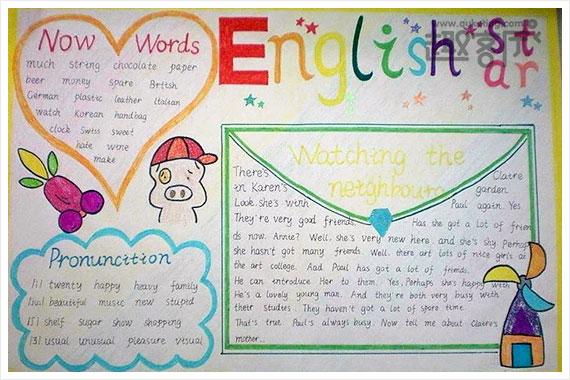 www.qukejin.com
趣客屋
English Star
Now Words
much string chocolate paper
beer money spare British
German plastic leather Italian
watch Korean handbag
clock Swiss sweet
hate wine
make
Pronuncition
[i] twenty happy heavy family
[ju:] beautiful music new stupid
[ʃ] shelf sugar show shopping
[ʒ] usual unusual pleasure visual
Watching the
neighbours
There's Claire
in Karen's garden.
Look, she's with Paul again. Yes.
They're very good friends. Has she got a lot of frien
ds now, Annie? Well, she's very new here, and she's shy. Perhaps
she hasn't got many friends. Well, there are lots of nice girls at
the art college. And Paul has got a lot of friends.
He can introduce Her to them. Yes, Perhaps she's happy with
He's a lovely young man. And they're both very busy with
their studies. They haven't got a lot of spare time.
That's true. Paul's always busy. Now tell me about Claire's
mother...